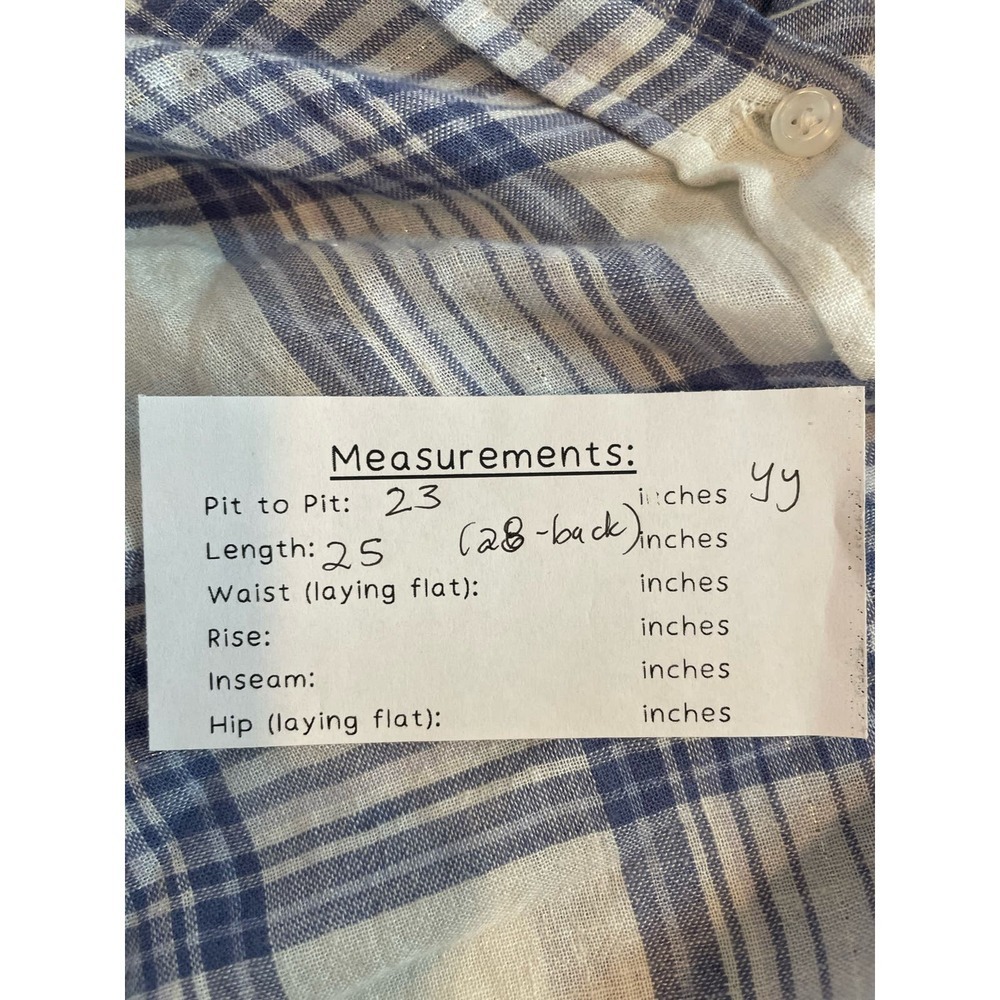 Measurements:
Pit to Pit: 23 inches yy
Length: 25 (28-back) inches
Waist (laying flat): inches
Rise: inches
Inseam: inches
Hip (laying flat): inches